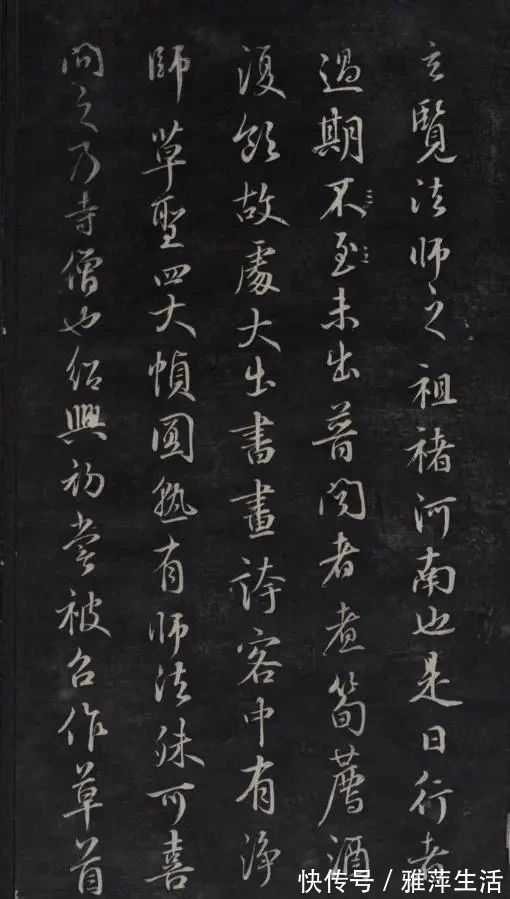 玄覽法師之祖褚河南也是日行者
過期不至未出普閔者煮筍薦酒
復飯故處大出書畫誇客中有淨
師草聖四大幀圓熟有師法殊可喜
問之乃寺僧也紹興初嘗被召作草首
快传号 / 雅萍生活